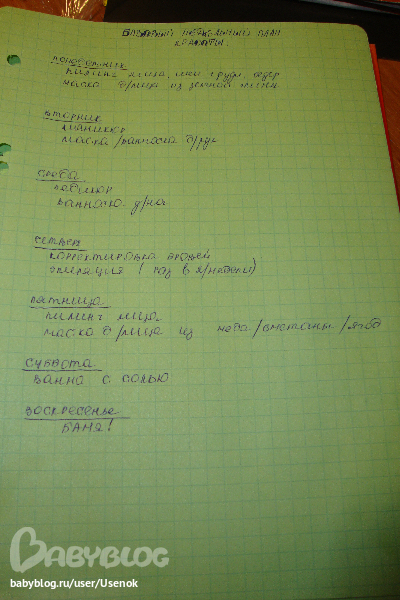 БАЗОВЫЙ НЕДЕЛЬНЫЙ ПЛАН
КРАСОТЫ.
ПОНЕДЕЛЬНИК
пилинг лица, шеи груди, бёдер
маска д/лица из зелёной глины
ВТОРНИК
маникюр
маска/ванночка д/рук
СРЕДА
педикюр
ванночка д/ног
ЧЕТВЕРГ
корректировка бровей
эпиляция (раз в неделю)
ПЯТНИЦА
пилинг лица
маска д/лица из меда/сметаны/ягод
СУББОТА
ванна с солью
ВОСКРЕСЕНЬЕ
БАНЯ!
BABYBLOG
babyblog.ru/user/Usenok